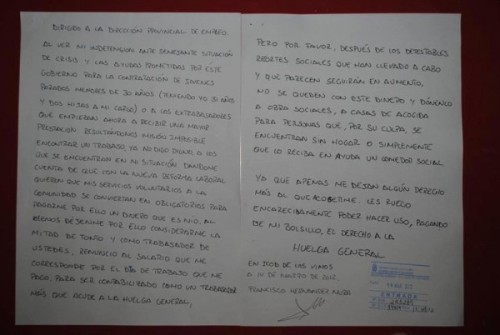 DIRIGIDO A LA DIRECCIÓN PROVINCIAL DE EMPLEO
AL VER MI INDEFENSIÓN ANTE SEMEJANTE SITUACIÓN
DE CRISIS Y LAS AYUDAS PROMETIDAS POR ESTE
GOBIERNO PARA LA CONTRATACIÓN DE JÓVENES
PARADOS MENORES DE 30 AÑOS (TENIENDO YO 30 AÑOS
Y DOS HIJAS A MI CARGO) O A LOS EXTRABAJADORES
QUE EMPIEZAN AHORA A RECIBIR UNA MAYOR
PRESTACIÓN, RESULTÁNDONOS MISIÓN IMPOSIBLE
ENCONTRAR UN TRABAJO, YA NO DIGO DIGNO A LOS
QUE SE ENCUENTRAN EN MI SITUACIÓN, DÁNDOME
CUENTA DE QUE CON LA NUEVA REFORMA LABORAL
QUIEREN QUE MIS SERVICIOS VOLUNTARIOS A LA
COMUNIDAD SE CONVIERTAN EN OBLIGATORIOS PARA
PAGARME POR ELLO UN DINERO QUE ES MÍO, AL
MENOS DÉJENME POR ELLO CONSIDERARME LA
MITAD DE TONTO Y COMO TRABAJADOR DE
USTEDES, RENUNCIO AL SALARIO QUE ME
CORRESPONDE POR EL DÍA DE TRABAJO QUE ME
PAGO, PARA SER CONTABILIZADO COMO UN TRABAJADOR
MÁS QUE ACUDE A LA HUELGA GENERAL,
PERO POR FAVOR, DESPUÉS DE LOS DETESTABLES
RECORTES SOCIALES QUE HAN LLEVADO A CABO
Y QUE PARECEN SEGUIRÁN EN AUMENTO,
NO SE QUEDEN CON ESTE DINERO Y DÓNENLO
A OBRA SOCIALES, A CASAS DE ACOGIDA
PARA PERSONAS QUE, POR SU CULPA, SE
ENCUENTRAN SIN HOGAR O SIMPLEMENTE
QUE LO RECIBA EN AYUDA UN COMEDOR SOCIAL.
YA QUE APENAS ME DEJAN ALGÚN DERECHO
MÁS AL QUE ACOGERME, LES RUEGO
ENCARECIDAMENTE PODER HACER USO, PAGANDO
DE MI BOLSILLO, EL DERECHO A LA
HUELGA GENERAL
EN ICOD DE LOS VINOS
A 14 DE MARZO DE 2012,
FRANCISCO HERNÁNDEZ
ENTRADA